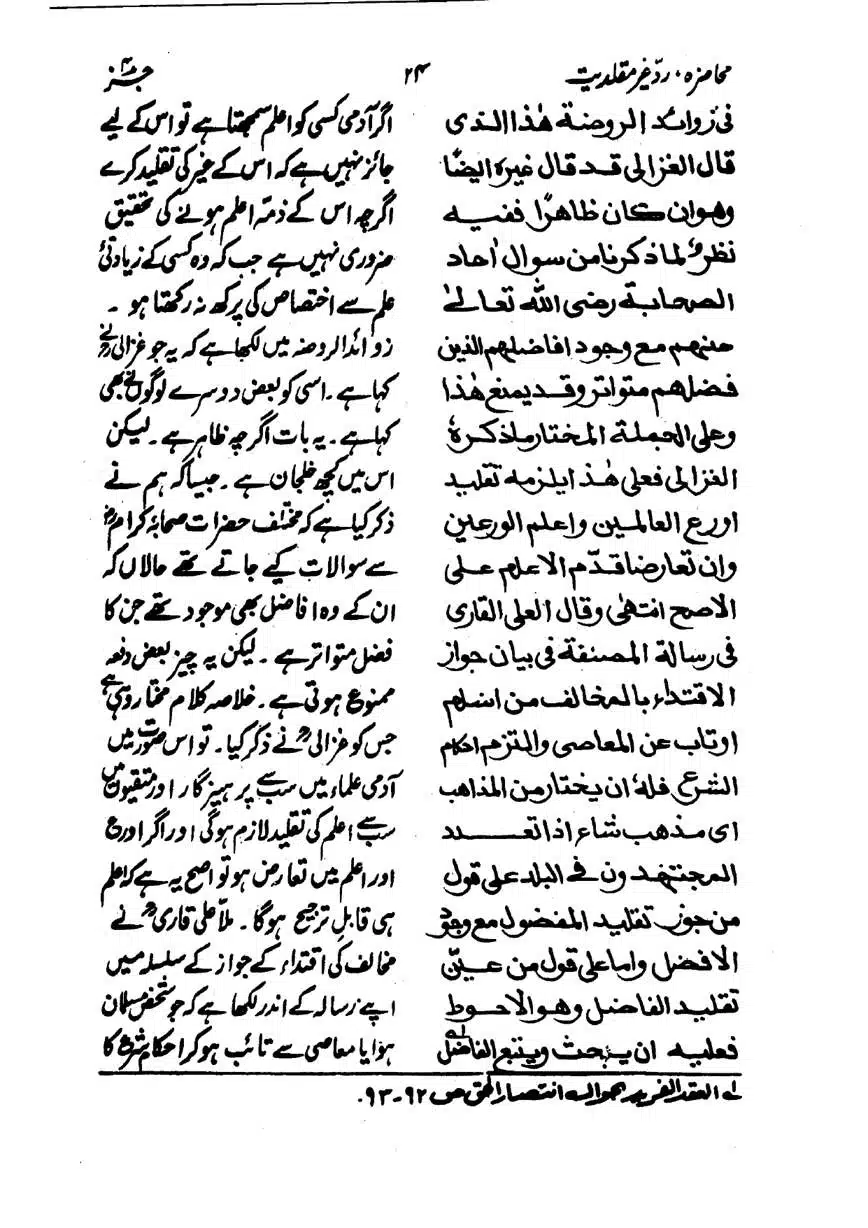 محاضرہ، ردّ غیر مقلدیت
۲۴
جز ۳
فی زوائد الروضة هٰذا الذی
قال الغزالی قد قال غیره ایضًا
وهو ان کان ظاهرًا ففیه
نظر لما ذکرنا من سوال اٰحاد
الصحابة رضی الله تعالیٰ
عنهم مع وجود افاضلهم الذین
فضلهم متواتر وقد یمنع هٰذا
وعلی الجملة المختار ماذکرهٗ
الغزالی فعلی هٰذا یلزمه تقلید
اورع العالمین واعلم الورعین
وان تعارضا قدّم الاعلم علی
الاصح انتهیٰ وقال العلی القاری
فی رسالة المصنفة فی بیان جواز
الاقتداء بالمخالف من اسلم
اوتاب عن المعاصی والتزم احکام
الشرع فلهٗ ان یختار من المذاهب
ای مذهب شاء اذا تعدد
المجتهدون فی البلد علی قول
من جوز تقلید المفضول مع وجود
الافضل واما علی قول من عیّن
تقلید الفاضل وهو الاحوط
فعلیه ان یبحث ویتبع الفاضل لہ
اگر آدمی کسی کو اعلم سمجھتا ہے تو اس کے لیے
جائز نہیں ہے کہ اس کے غیر کی تقلید کرے
اگرچہ اس کے ذمّہ اعلم ہونے کی تحقیق
ضروری نہیں ہے جب کہ وہ کسی کے زیادتیٔ
علم سے اختصاص کی پرکھ نہ رکھتا ہو ۔
زوائد الروضہ میں لکھا ہے کہ یہ جو غزالیؒ نے
کہا ہے ۔ اسی کو بعض دوسرے لوگوں نے بھی
کہا ہے ۔ یہ بات اگرچہ ظاہر ہے ۔ لیکن
اس میں کچھ خلجان ہے ۔ جیسا کہ ہم نے
ذکر کیا ہے کہ مختلف حضرات صحابۂ کرامؓ
سے سوالات کیے جاتے تھے حالاں کہ
ان کے وہ افاضل بھی موجود تھے جن کا
فضل متواتر ہے ۔ لیکن یہ چیز بعض دفعہ
ممنوع ہوتی ہے ۔ خلاصہ کلام مختار وہی ہے
جس کو غزالیؒ نے ذکر کیا ۔ تو اس صورت میں
آدمی علماء میں سب سے پرہیزگار اور متقیوں میں
سب سے اعلم کی تقلید لازم ہوگی اور اگر اورع
اور اعلم میں تعارض ہو تو اصح یہ ہے کہ اعلم
ہی قابلِ ترجیح ہوگا ۔ ملّا علی قاریؒ نے
مخالف کی اقتداء کے جواز کے سلسلہ میں
اپنے رسالہ کے اندر لکھا ہے کہ جو شخص مسلمان
ہوا یا معاصی سے تائب ہو کر احکام شرع کا
لہ العقد الفرید بحوالہ انتصار الحق ص ۹۲-۹۳.